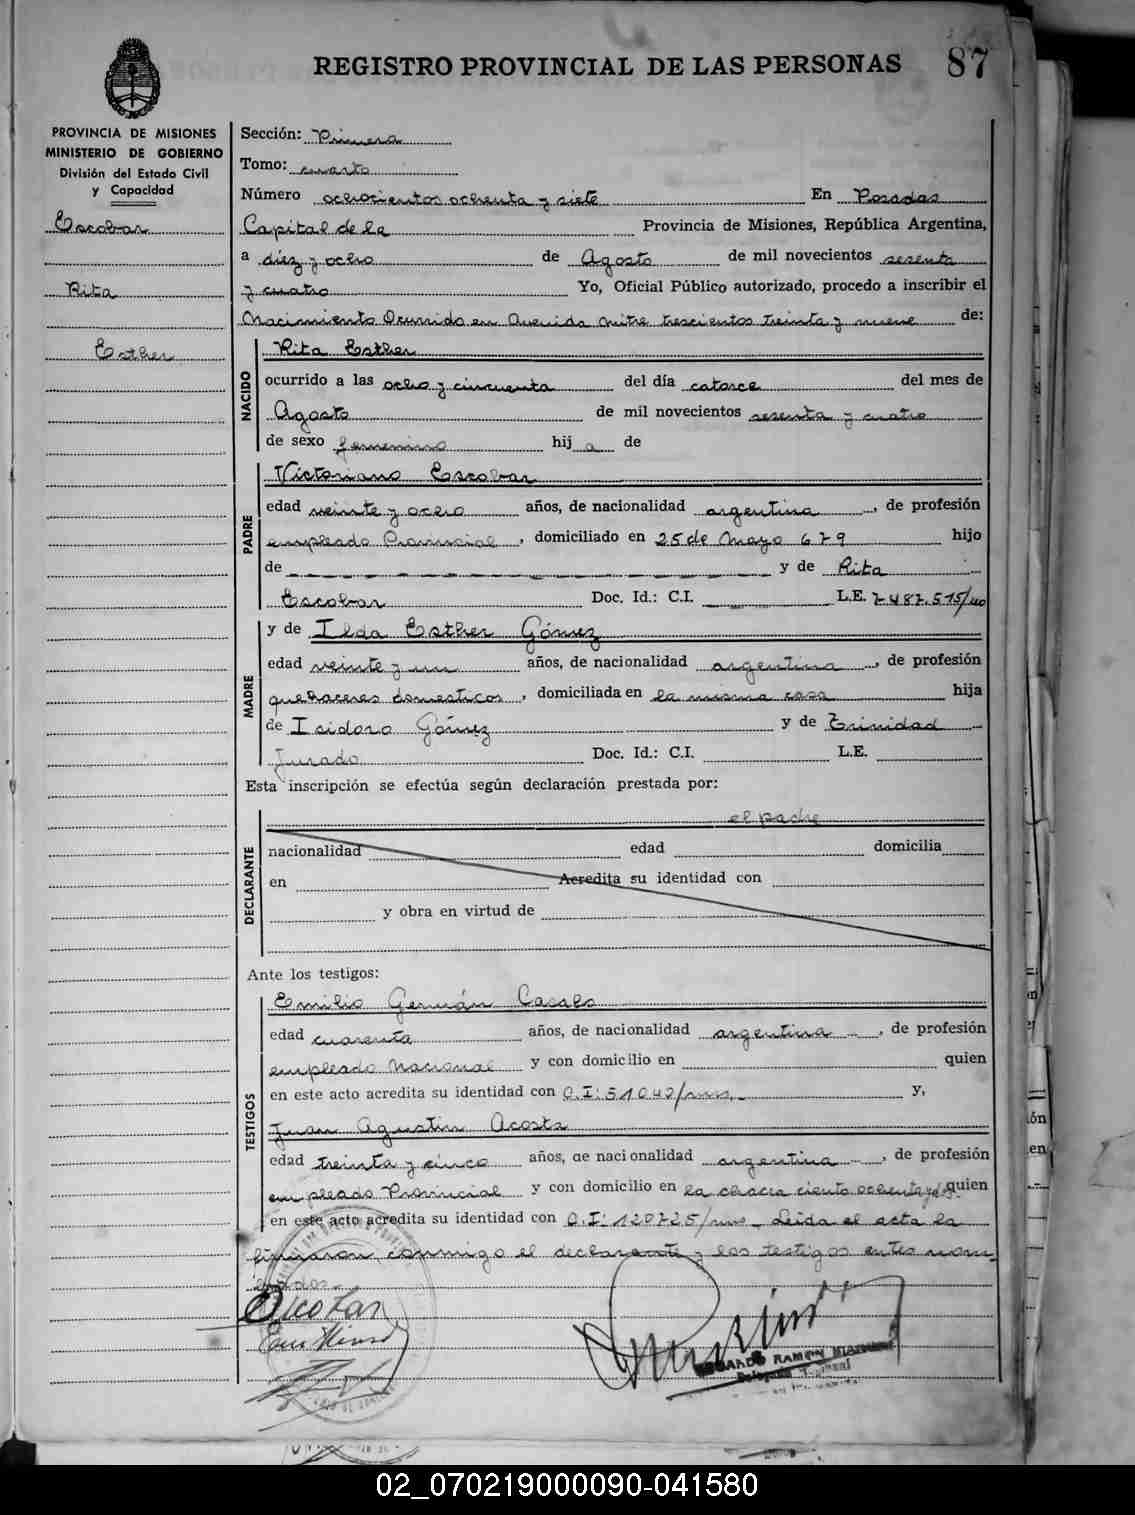 REGISTRO PROVINCIAL DE LAS PERSONAS 87
PROVINCIA DE MISIONES
MINISTERIO DE GOBIERNO
División del Estado Civil
y Capacidad
Escobar
Rita
Esther
Sección: Primera
Tomo: cuarto
Número ochocientos ochenta y siete En Posadas
Capital de la Provincia de Misiones, República Argentina,
a diez y ocho de Agosto de mil novecientos sesenta
y cuatro Yo, Oficial Público autorizado, procedo a inscribir el
Nacimiento Ocurrido en Avenida Mitre trescientos treinta y nueve de:
NACIDO
Rita Esther
ocurrido a las ocho y cincuenta del día catorce del mes de
Agosto de mil novecientos sesenta y cuatro
de sexo femenino hij a de
PADRE
Victoriano Escobar
edad veinte y ocho años, de nacionalidad argentina, de profesión
empleado Provincial, domiciliado en 25 de Mayo 679 hijo
de y de Rita
Escobar Doc. Id.: C.I. L.E. 7.487.515/
MADRE
y de Ilda Esther Gómez
edad veinte y un años, de nacionalidad argentina, de profesión
quehaceres domesticos, domiciliada en la misma casa hija
de Isidoro Gómez y de Trinidad
Jurado Doc. Id.: C.I. L.E.
Esta inscripción se efectúa según declaración prestada por:
DECLARANTE
el padre
nacionalidad edad domicilia
en Acredita su identidad con
y obra en virtud de
Ante los testigos:
TESTIGOS
Emilio Germán Casals
edad cuarenta años, de nacionalidad argentina, de profesión
empleado Nacional y con domicilio en quien
en este acto acredita su identidad con C.I: 51042/mns. y,
Juan Agustin Acosta
edad treinta y cinco años, de nacionalidad argentina, de profesión
empleado Provincial y con domicilio en la chacra ciento ochenta y dos quien
en este acto acredita su identidad con C.I: 120725/mns. Leida el acta la
firmaron conmigo el declarante y los testigos antes nom
brados.
Escobar
02_070219000090-041580